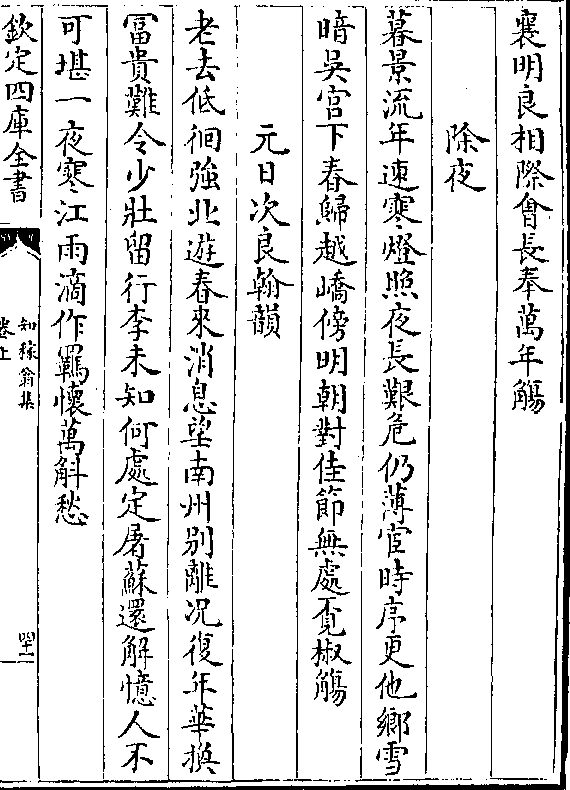 襄明良相際會長奉萬年觴
除夜
暮景流年速寒燈照夜長艱危仍薄宦時序更他鄉雪
暗吳宮下春歸越嶠傍明朝對佳節無處覓椒觴
元日次良翰韻
老去低徊強北遊春來消息望南州別離况復年華換
富貴難令少壯留行李未知何處定屠蘇還解憶人不
可堪一夜寒江雨滴作羈懷萬斛愁
欽定四庫全書
知稼翁集
卷上